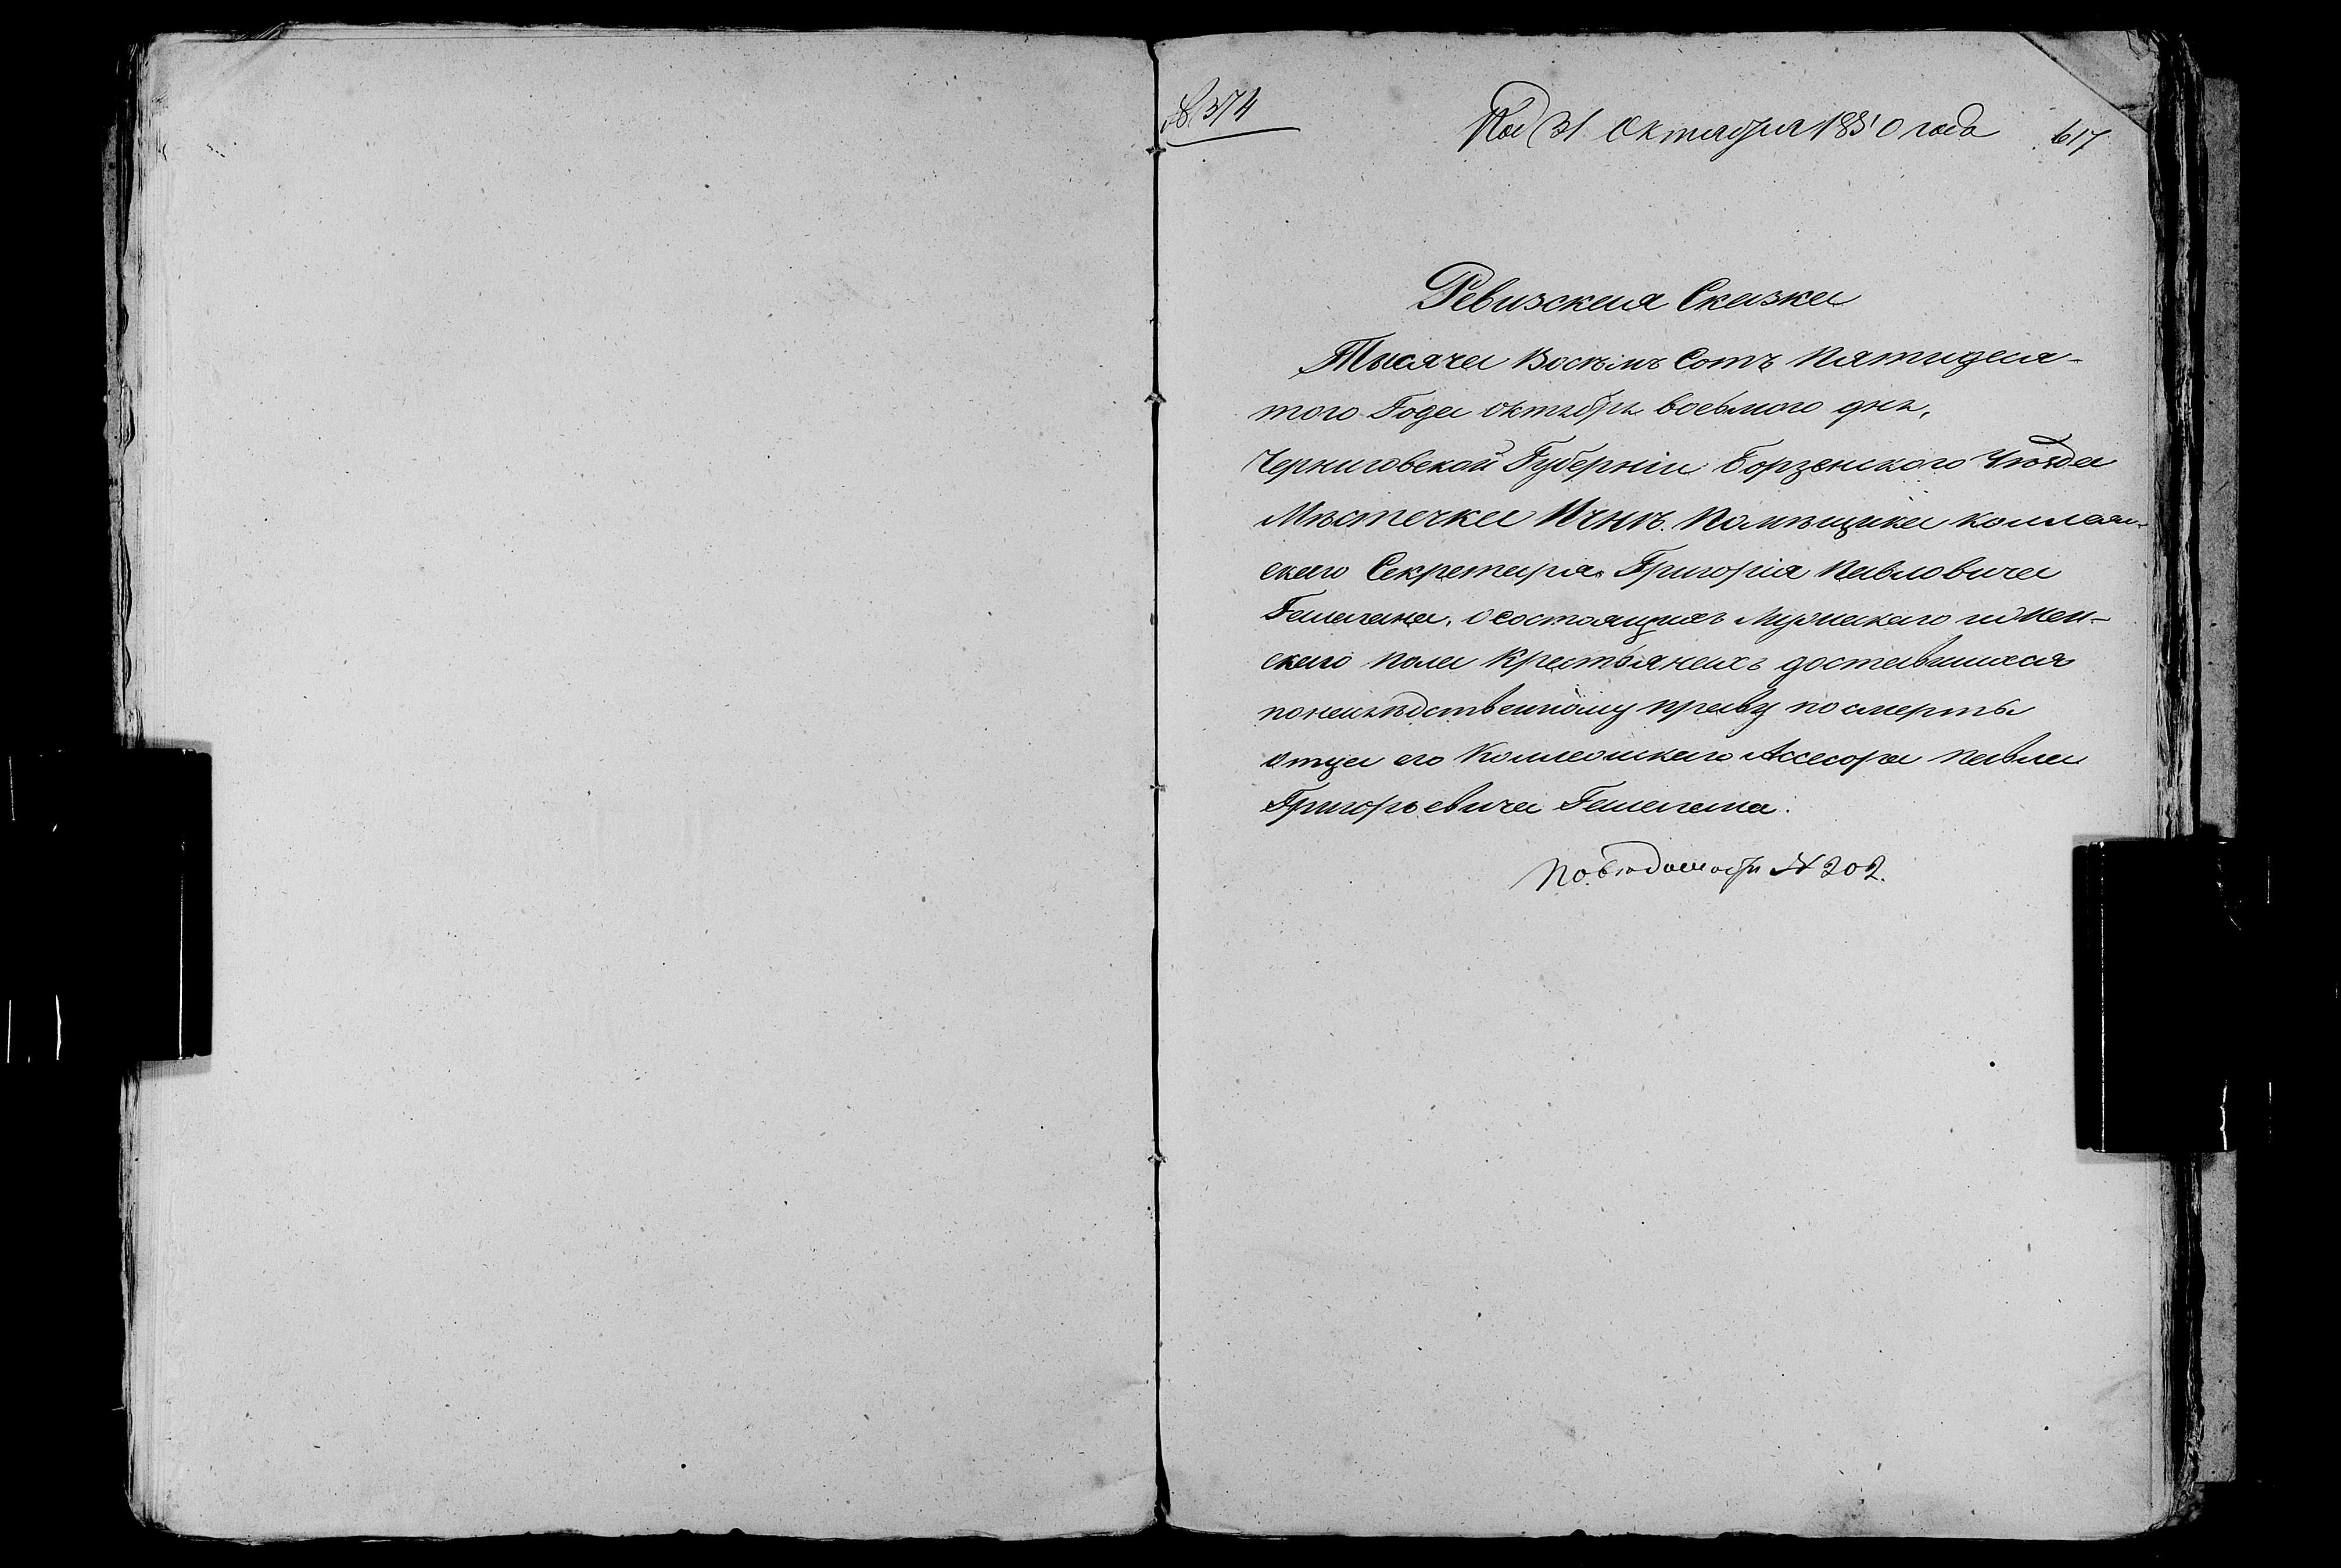 № 374
Под 31 Октября 1850 года 617
Ревизская Сказка
Тысяча Восѣмъ Сотъ Пятидеся-
того Года октябр восьмого дня,
Черниговской Губерніи Борзенского Уѣзда
Мѣстечка Ичнѣ Помѣщика Коллеж-
скаго Секретаря Григорія Павловича
о состоящихъ Мужескаго и Жен-
скаго пола Крестьянахъ доставшихся
по наслѣдственному праву по смерты
Отца его Коллежскаго Ассесора Павла
Григорьевича
По вѣдомости № 202.